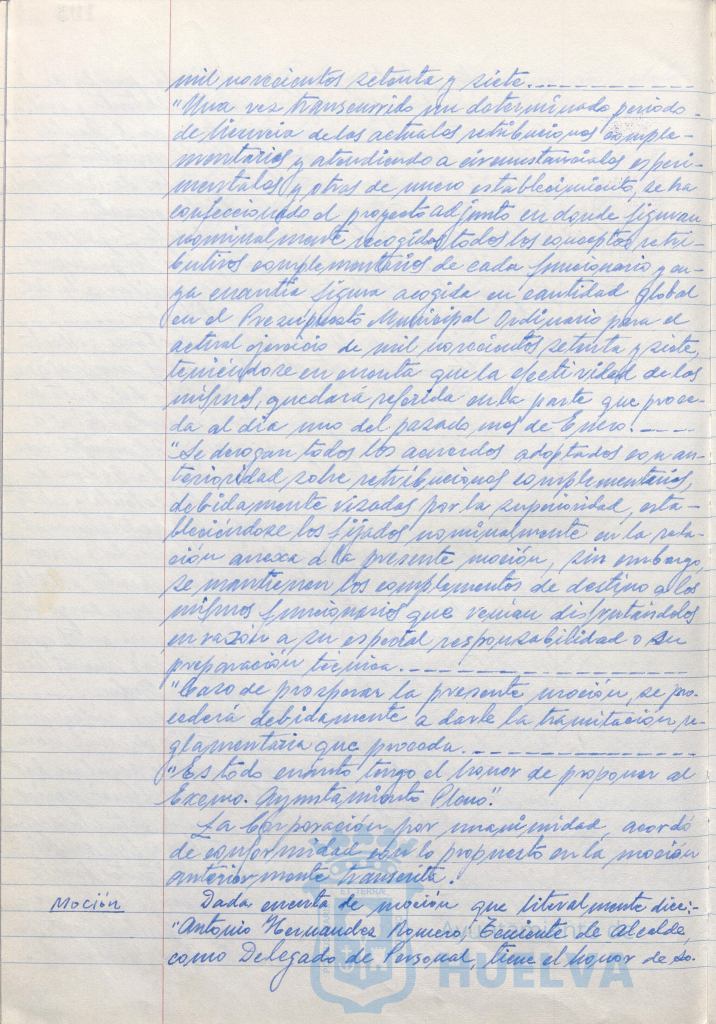 mil novecientos setenta y siete.------------
"Una vez transcurrido un determinado periodo
de licencia de los actuales retribuciones comple-
mentarias y atendiendo a circunstancias experi-
mentales y otras de nuevo establecimiento, se ha
confeccionado el proyecto adjunto en donde figuran
nominalmente recogidos todos los conceptos retri-
butivos complementarios de cada funcionario y cu-
ya cuantia figura acogida en cantidad global
en el Presupuesto Municipal Ordinario para el
actual ejercicio de mil novecientos setenta y siete,
teniéndose en cuenta que la efectividad de los
mismos, quedará referida en la parte que proce-
da al dia uno del pasado mes de Enero.----
"Se derogan todos los acuerdos adoptados con an-
terioridad sobre retribuciones complementarias,
debidamente visadas por la superioridad, esta-
bleciéndose los fijados nominalmente en la rela-
ción anexa a la presente moción, sin embargo,
se mantienen los complementos de destino a los
mismos funcionarios que venian disfrutándolos
en razón a su especial responsabilidad o su
preparación técnica.------------
"Caso de prosperar la presente moción, se pro-
cederá debidamente a darle la tramitación re-
glamentaria que proceda.------------
"Es todo cuanto tengo el honor de proponer al
Excmo. Ayuntamiento Pleno".
La Corporación por unanimidad, acordó
de conformidad con lo propuesto en la moción
anteriormente transcrita.
Moción Dada cuenta de moción que literalmente dice:-
"Antonio Hernandez Romero, Teniente de Alcalde,
como Delegado de Personal, tiene el honor de so-
HUELVA